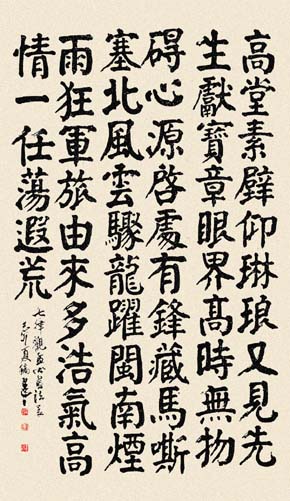 高堂素壁仰琳琅又見先
生獻寶章眼界高時無物
碍心源啓處有鋒藏馬嘶
塞北風雲驟龍躍閩南煙
雨狂軍旅由來多浩氣高
情一任蕩遐荒
七律觀
己卯夏